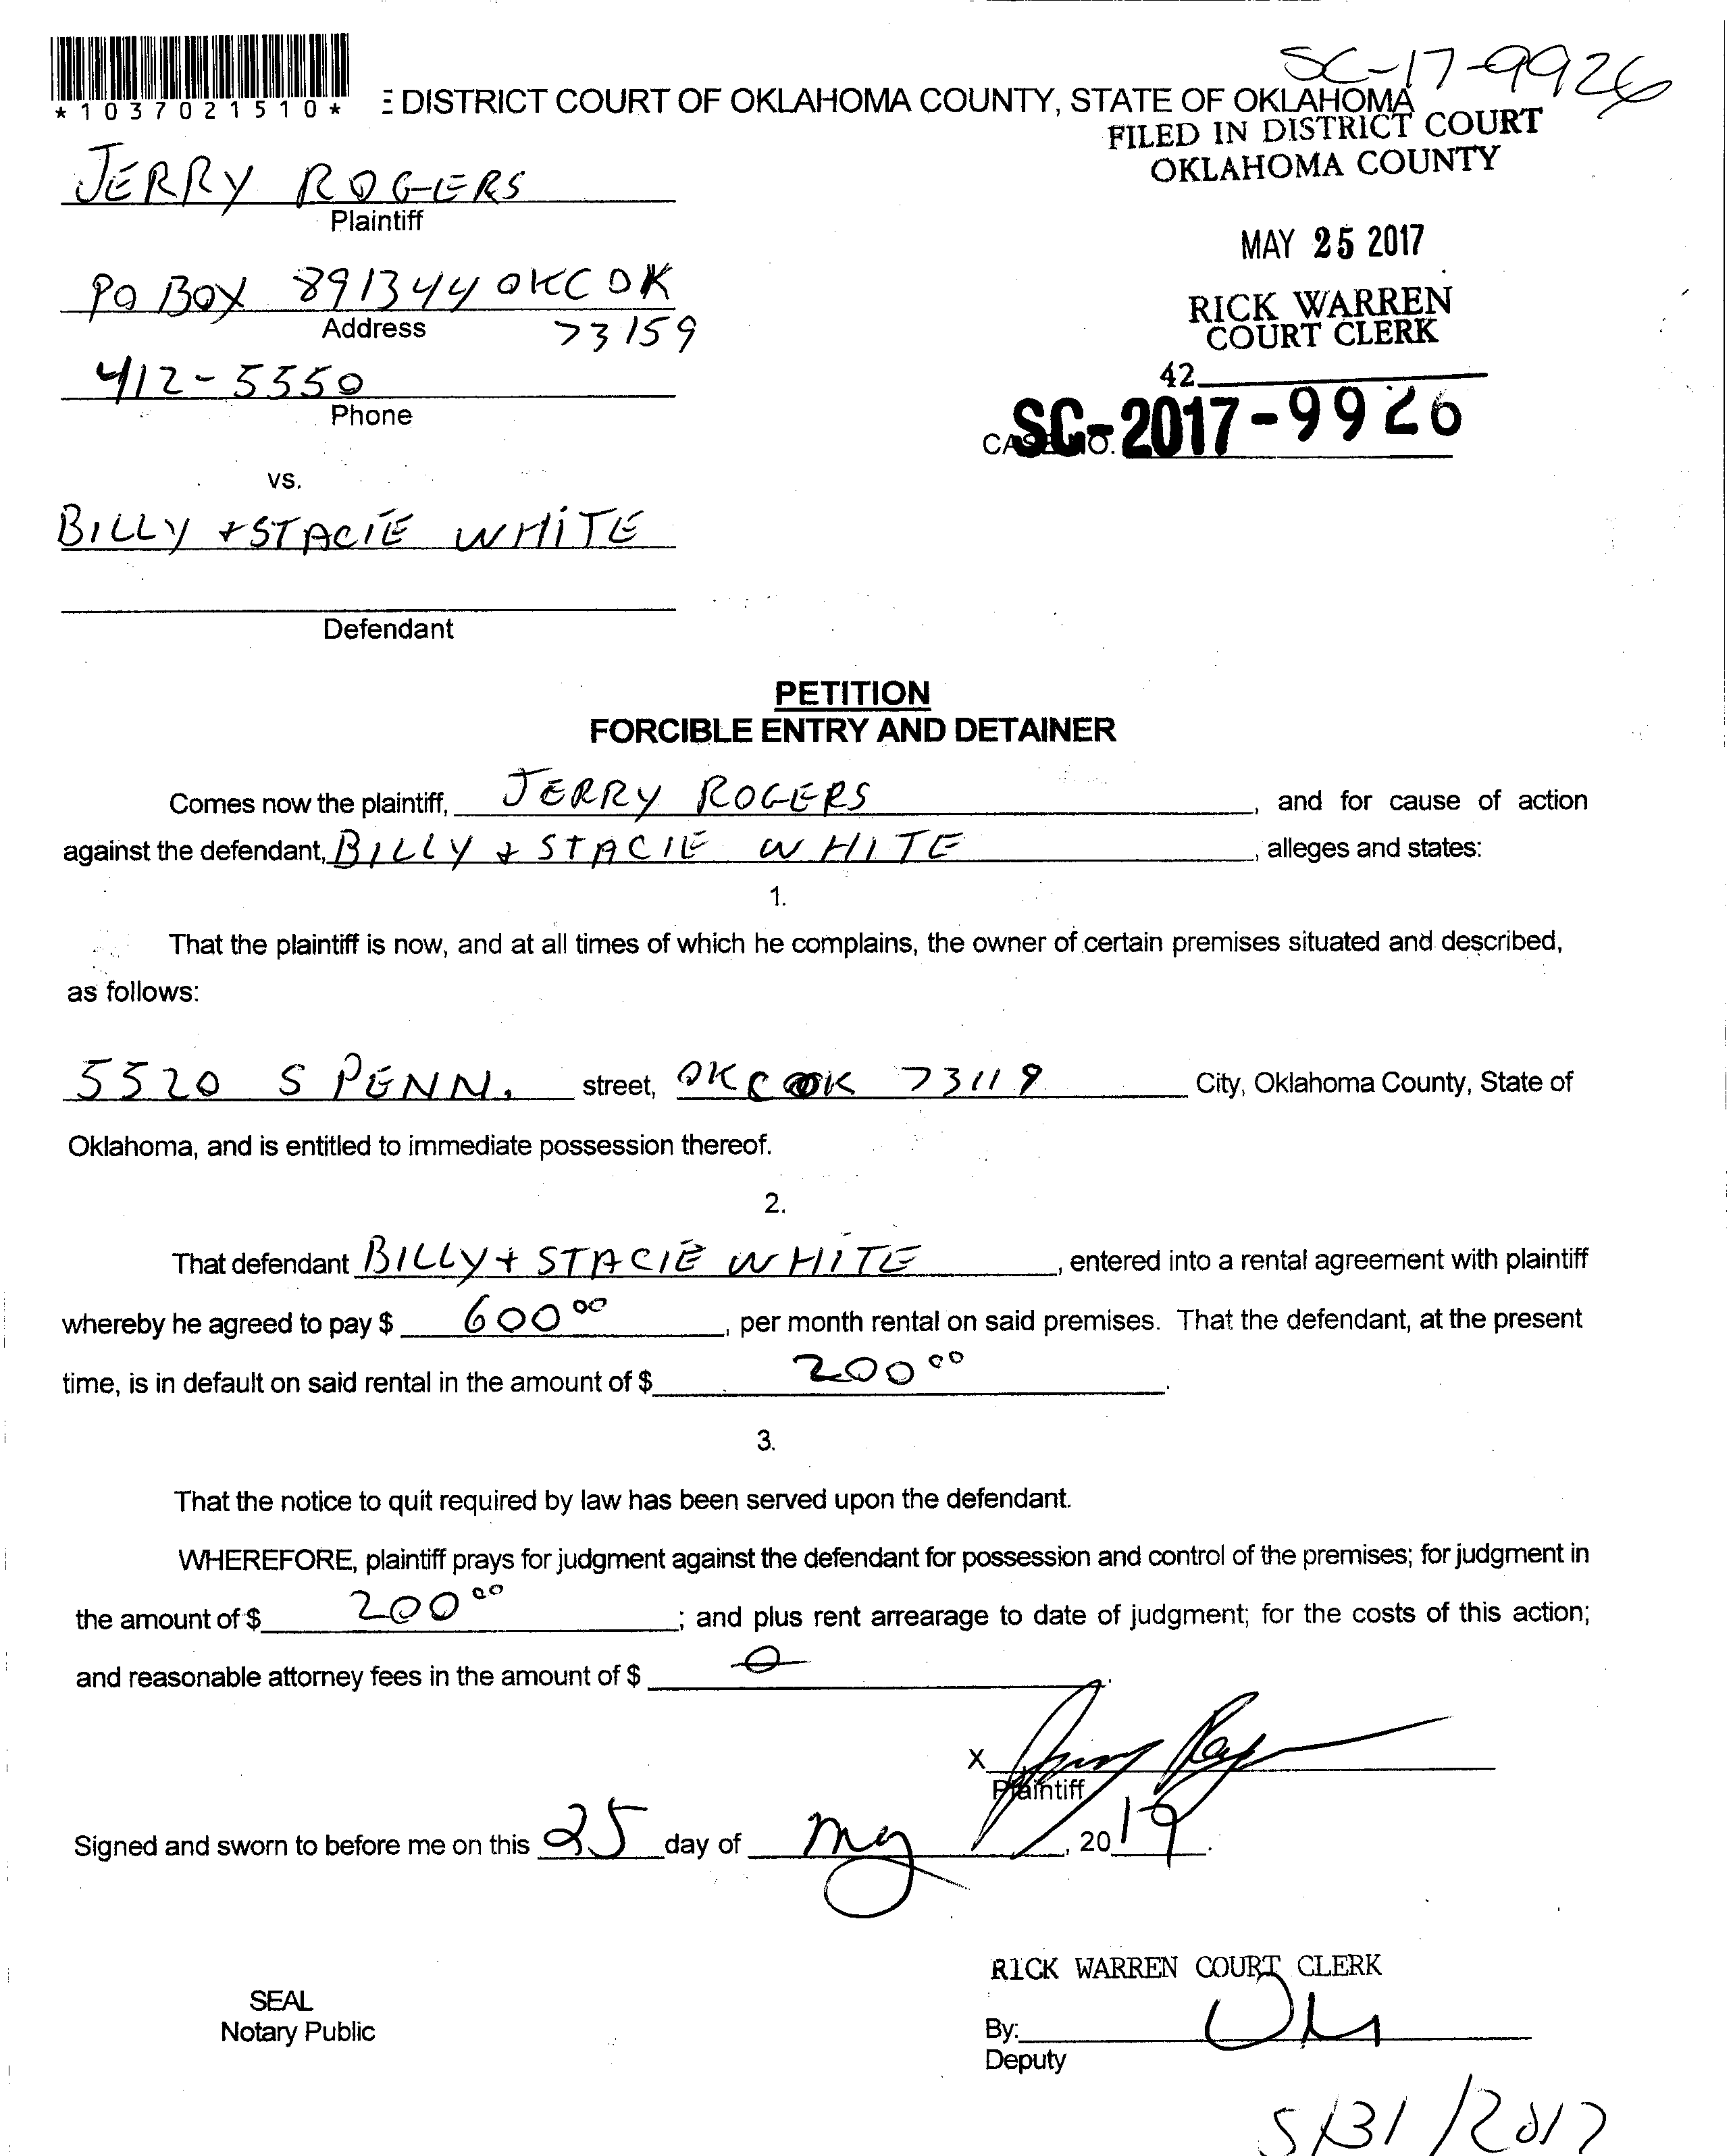 SC-17-9926
*1037021510*
DISTRICT COURT OF OKLAHOMA COUNTY, STATE OF OKLAHOMA
FILED IN DISTRICT COURT
OKLAHOMA COUNTY
JERRY ROGERS
Plaintiff
MAY 25 2017
PO BOX 891344 OKC OK
Address 73159
RICK WARREN
COURT CLERK
412-5550
Phone
42
CASE NO. SC-2017-9926
vs.
BILLY + STACIE WHITE
Defendant
PETITION
FORCIBLE ENTRY AND DETAINER
Comes now the plaintiff, JERRY ROGERS, and for cause of action
against the defendant, BILLY + STACIE WHITE, alleges and states:
1.
That the plaintiff is now, and at all times of which he complains, the owner of certain premises situated and described,
as follows:
5520 S PENN. street, OKC OK 73119 City, Oklahoma County, State of
Oklahoma, and is entitled to immediate possession thereof.
2.
That defendant BILLY + STACIE WHITE, entered into a rental agreement with plaintiff
whereby he agreed to pay $ 600 00, per month rental on said premises. That the defendant, at the present
time, is in default on said rental in the amount of $ 200 00.
3.
That the notice to quit required by law has been served upon the defendant.
WHEREFORE, plaintiff prays for judgment against the defendant for possession and control of the premises; for judgment in
the amount of $ 200 00; and plus rent arrearage to date of judgment; for the costs of this action;
and reasonable attorney fees in the amount of $ 0.
X
Plaintiff
Signed and sworn to before me on this 25 day of May, 20
RICK WARREN COURT CLERK
SEAL
Notary Public
By:
Deputy
5/31/2017